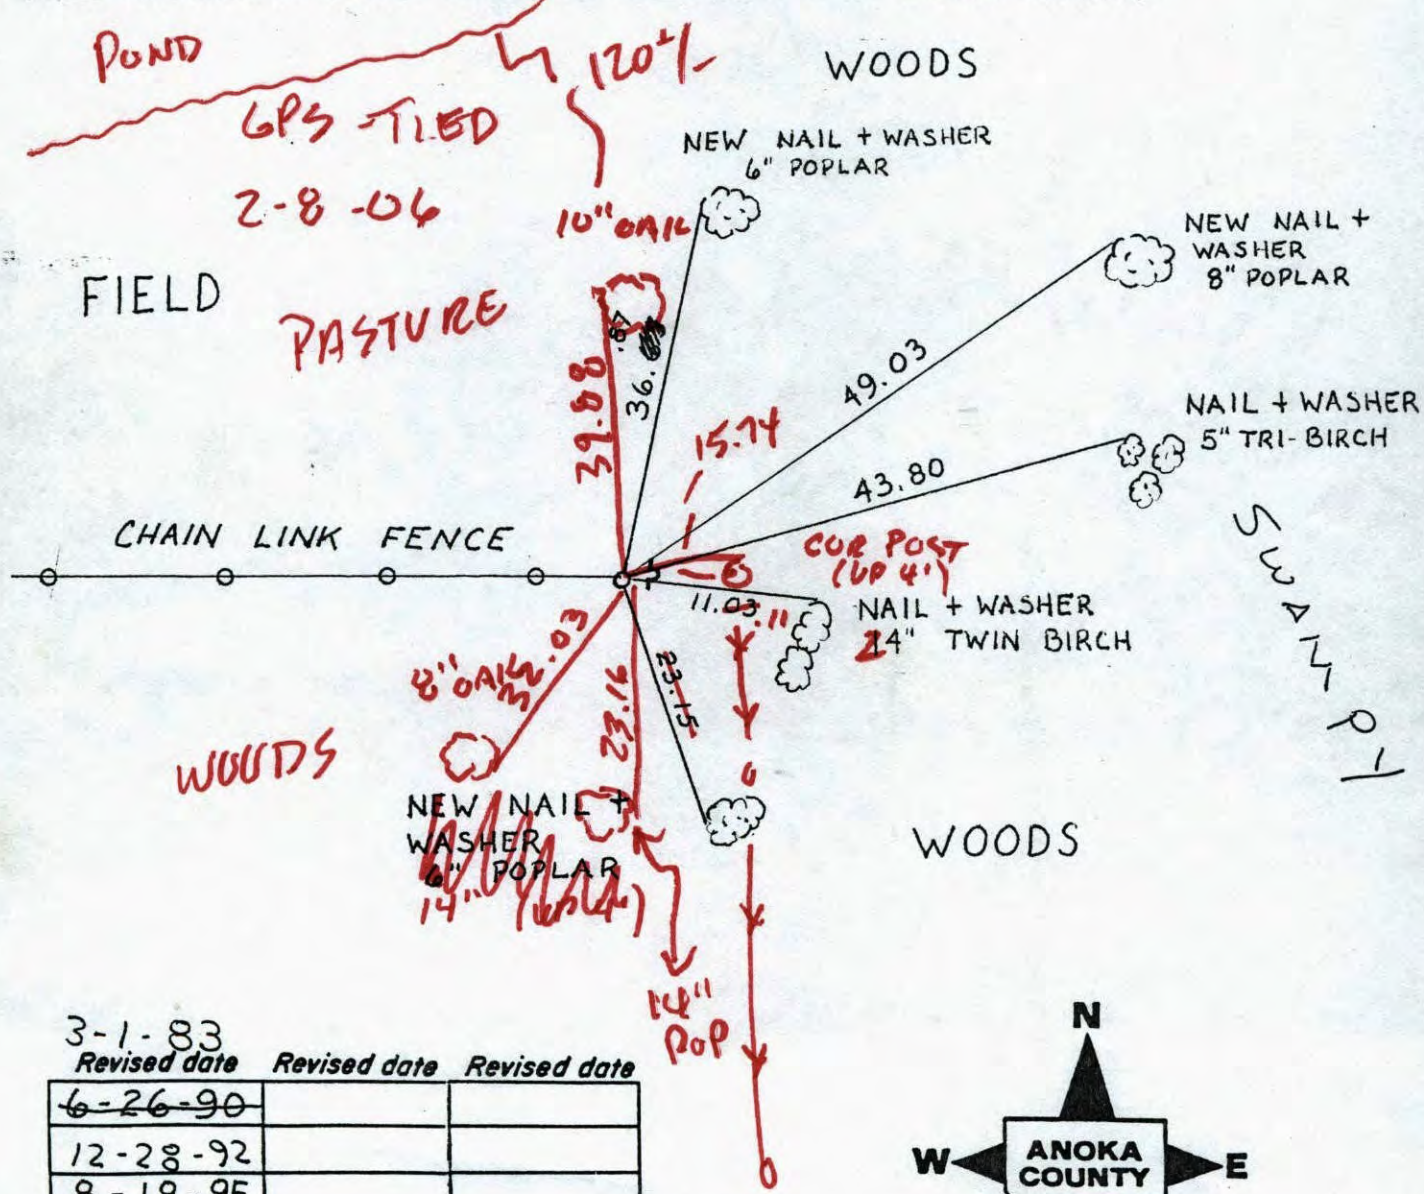 POND
120±
WOODS
GPS-TIED
2-8-06
NEW NAIL + WASHER
6" POPLAR
10" OAK
NEW NAIL +
WASHER
8" POPLAR
FIELD
PASTURE
39.88
36.
.87
15.74
49.03
NAIL + WASHER
5" TRI-BIRCH
43.80
CHAIN LINK FENCE
COR POST
(UP 4')
11.03
.11
NAIL + WASHER
24" TWIN BIRCH
SWAMP
8" OAK
32.03
23.16
23.15
WOODS
NEW NAIL +
WASHER
6" POPLAR
14" (UP 4')
WOODS
14"
POP
3-1-83
Revised date Revised date Revised date
6-26-90
12-28-92
8-18-95
N
W ANOKA E
COUNTY